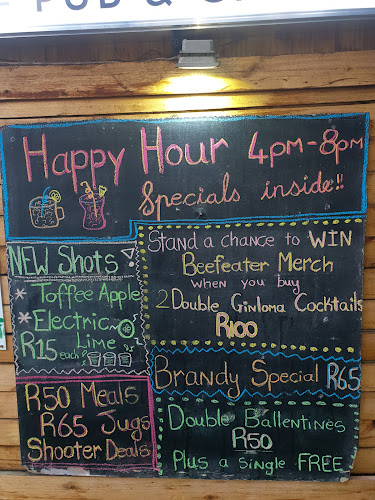 PUB &
Happy Hour 4pm-8pm
Specials inside!!
NEW Shots
* Toffee Apple
* Electric
Lime
R15 each
R50 Meals
R65 Jugs
Shooter Deals
Stand a chance to WIN
Beefeater Merch
when you buy
2 Double Ginloma Cocktails
R100
Brandy Special R65
Double Ballentines
R50
Plus a single FREE